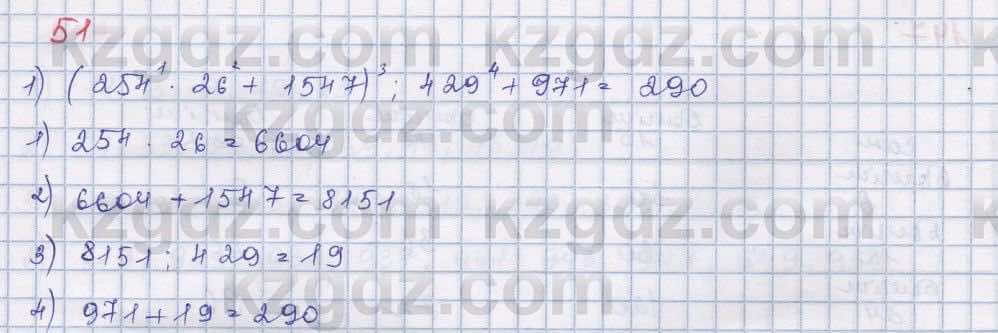 51
1) (254¹ · 26² + 1547)³ : 429⁴ + 971 = 290
1) 254 · 26 = 6604
2) 6604 + 1547 = 8151
3) 8151 : 429 = 19
4) 971 + 19 = 290
kzgdz.com kzgdz.com
kzgdz.com kzgdz.com
kzgdz.com kzgdz.com